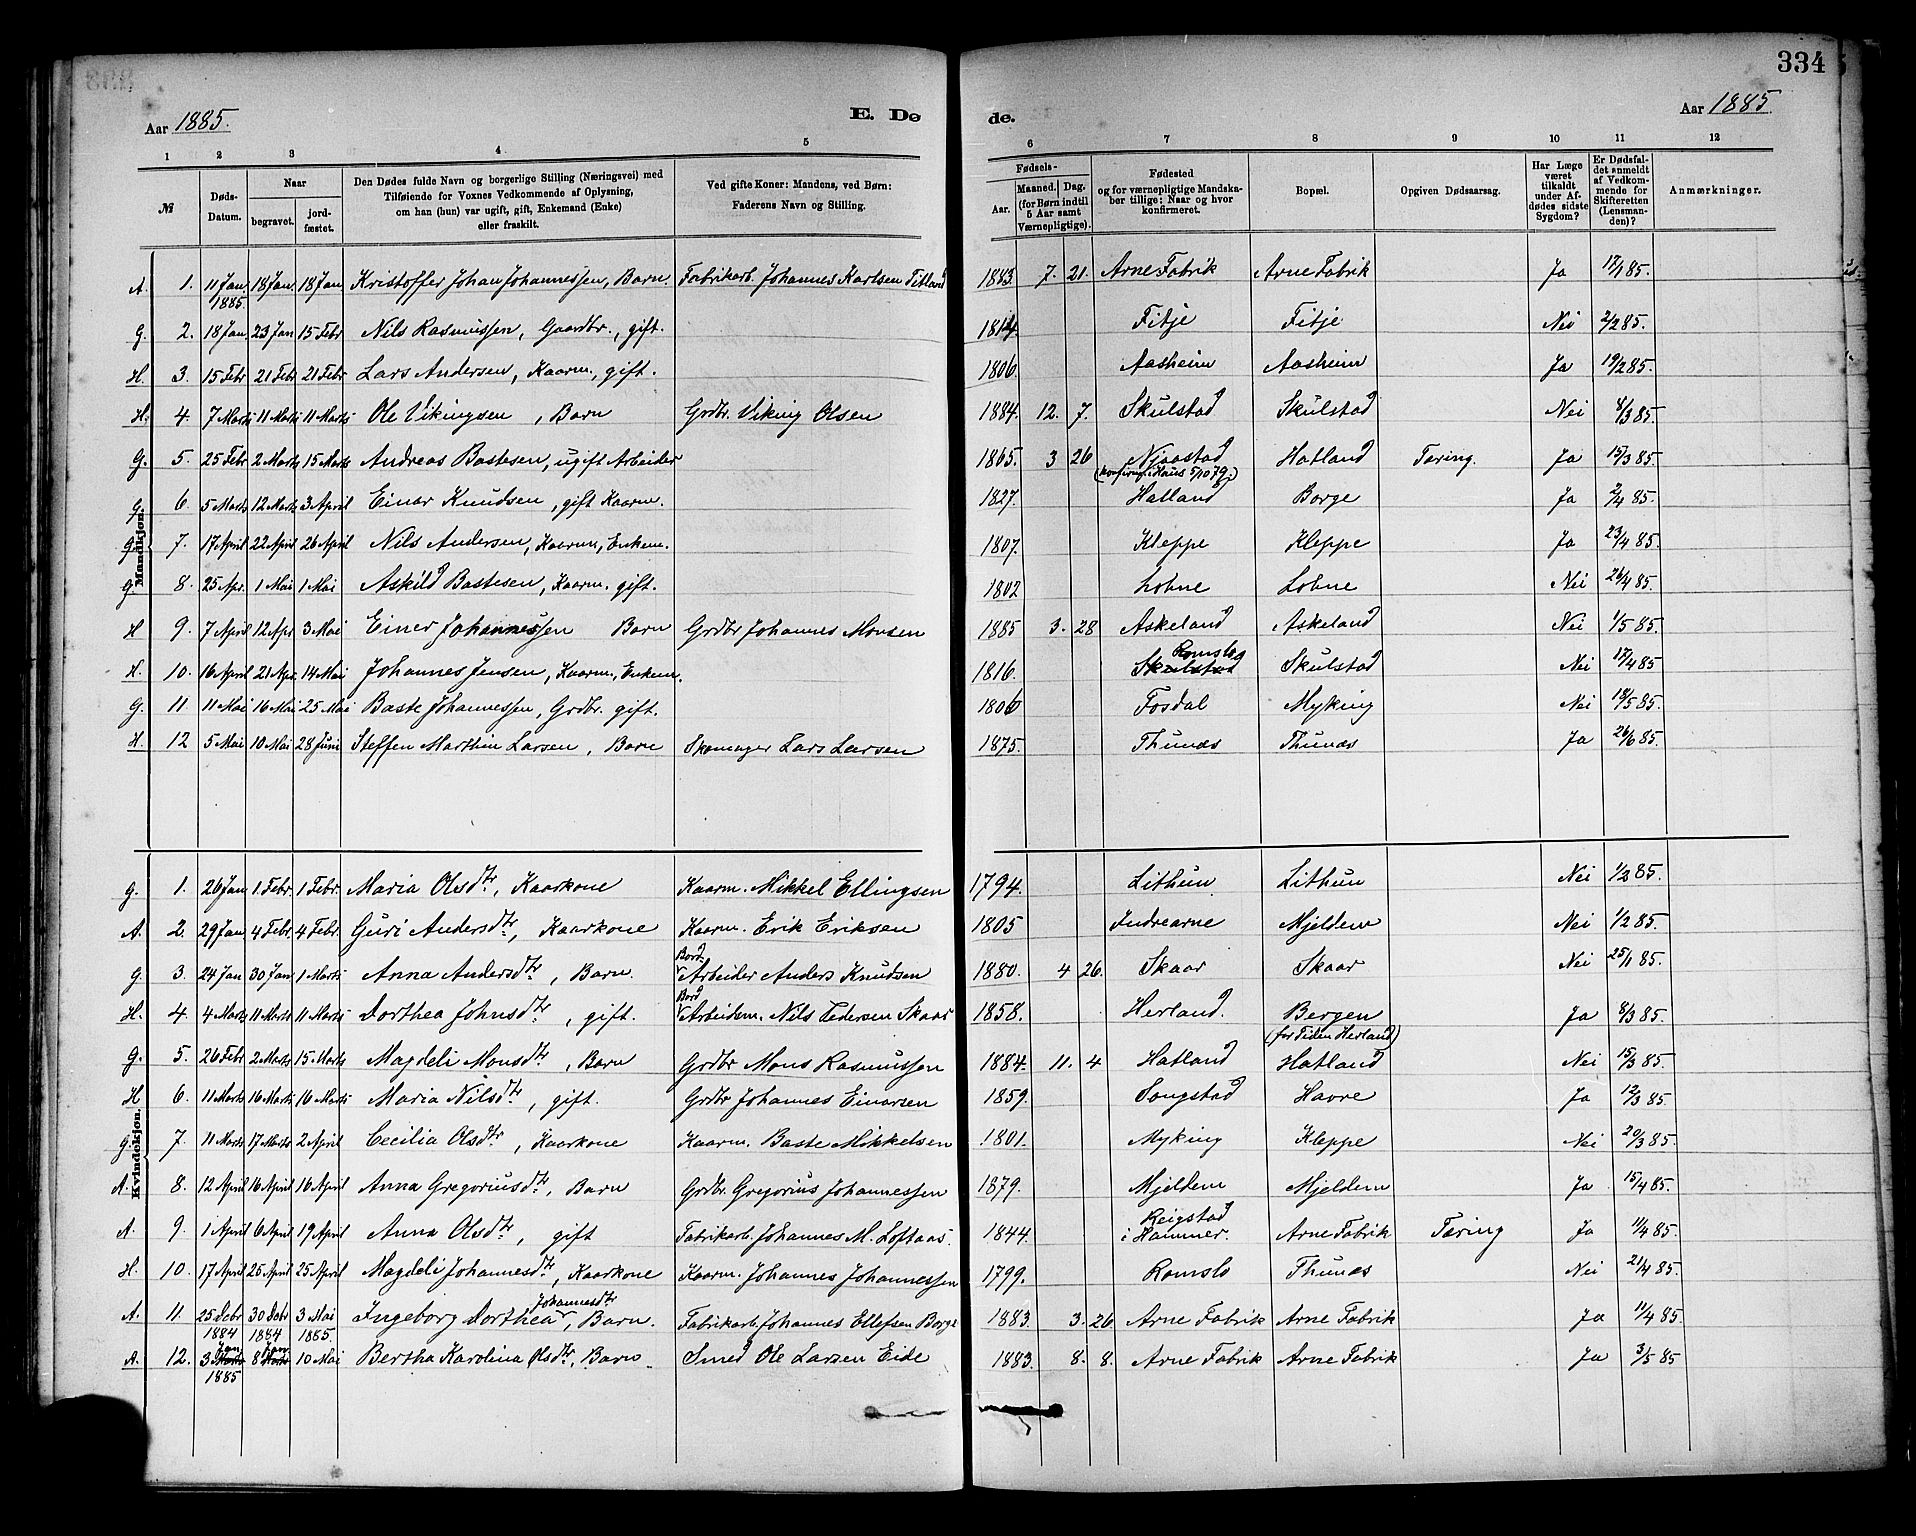 334
Aar 1885. E. Dø de. Aar 1885
1 2 3 4 5 6 7 8 9 10 11 12
№ Døds-Datum. Naar begravet. jord-fæstet. Den Dødes fulde Navn og borgerlige Stilling (Næringsvei) med Tilføiende for Voxnes Vedkommende af Oplysning, om han (hun) var ugift, gift, Enkemand (Enke) eller fraskilt. Ved gifte Koner: Mandens, ved Børn: Faderens Navn og Stilling. Fødsels- Aar. Maaned. Dag. (for Børn indtil 5 Aar samt Værnepligtige). Fødested og for værnepligtige Mandskaber tillige: Naar og hvor konfirmeret. Bopæl. Opgiven Dødsaarsag. Har Læge været tilkaldt under Afdødes sidste Sygdom? Er Dødsfaldet anmeldt af Vedkommende for Skifteretten (Lensmanden)? Anmærkninger.
Mandkjøn.
A. 1. 11 Jan 1885. 18 Jan 18 Jan Kristoffer Johan Johannessen, Barn. Fabrikarb. Johannes Karlsen Titland 1883 7. 21. Arne Fabrik Arne Fabrik Ja 17/1 85.
G. 2. 18 Jan. 23 Jan 15 Febr Nils Rasmussen, Gaardbr., gift. 1814 Fitje Fitje Nei 2/2 85.
H. 3. 15 Febr 21 Febr 21 Febr Lars Andersen, Kaarm., gift. 1806. Aasheim Aasheim Ja 19/2 85.
H. 4. 7 Marts 11 Marts 11 Marts Ole Vikingsen, Barn Grdbr. Viking Olsen 1884. 12. 7. Skulstad Skulstad Nei 8/3 85.
G. 5. 25 Febr 2 Marts 15 Marts Andreas Bastesen, ugift Arbeider 1865. 3 26 Njaastad (konfirm. Haus 5/10 79.) Hatland Tæring. Ja 15/3 85.
G. 6. 5 Marts 12 Marts 3 April Einar Knudsen, gift Kaarm. 1827. Hatland Borge Ja 2/4 85.
G. 7. 17 April 22 April 26 April Nils Andersen, Kaarm., Enkem. 1807. Kleppe Kleppe Ja 23/4 85.
G. 8. 25 Apr. 1 Mai 1 Mai Askild Bastesen, Kaarm. gift. 1802 Lohne Lohne Nei 26/4 85.
H 9. 7 April 12 Apr 3 Mai Einer Johannessen Barn Grdbr Johannes Monsen 1885 3. 28 Askeland Askeland Nei 1/5 85.
H. 10. 16 April 21 Apr. 14 Mai Johannes Jensen, Kaarm., Enkem. 1816. Romslo Skulstad Skulstad Nei 17/4 85
G. 11 11 Mai 16 Mai 25 Mai Baste Johannessen, Grdbr. gift. 1806 Fosdal Myking Nei 18/5 85.
H. 12 5 Mai 10 Mai 28 Juni Steffen Marthin Larsen, Barn Skomager Lars Larsen 1875. Thunæs Thunæs Ja 26/6 85.
Kvindekjøn.
G. 1. 26 Jan 1. Febr. 1 Febr. Maria Olsdtr, Kaarkone Kaarm. Mikkel Ellingsen 1794. Lithun Lithun Nei 1/2 85.
A. 2. 29 Jan. 4 Febr 4 Febr. Guri Andersdtr, Kaarkone Kaarm. Erik Eriksen 1805 Indrearne Mjeldem Nei 1/2 85.
G 3. 24 Jan 30 Jan 1 Marts Anna Andersdtr, Barn. Bord Arbeider Anders Knudsen 1880. 4 26. Skaar Skaar Nei 25/1 85.
H. 4. 4 Marts 11 Marts 11 Marts Dorthea Johnsdtr, gift. Bord Arbeidem. Nils Pedersen Skaar 1858. Herland. Bergen (for Tiden Herland) Ja 8/3 85.
G. 5. 26 Febr 2 Marts 15 Marts Magdeli Monsdtr, Barn Grdbr Mons Rasmussen 1884. 11. 4 Hatland Hatland Nei 15/3 85.
H 6. 11 Marts 16 Marts 16 Marts Maria Nilsdtr, gift. Grdbr Johannes Einarsen 1859. Songstad Havre Ja 12/3 85.
G. 7. 11 Marts 17 Marts 2 April Cecilia Olsdtr, Kaarkone Kaarm. Baste Mikkelsen 1801. Myking Kleppe Nei 20/3 85.
A. 8. 12 April 16 April 16 April Anna Gregoriusdtr, Barn Grdbr. Gregorius Johannessen 1879. Mjeldem Mjeldem Ja 15/4 85.
A. 9. 1 April 6 April 19 April Anna Olsdtr, gift Fabrikarb. Johannes M. Loftaas. 1844. Reigstad i Hammer. Arne Fabrik Tæring Ja 11/4 85.
H. 10. 17 April 25 April 25 April Magdeli Johannesdtr, Kaarkone Kaarm. Johannes Johannessen 1799. Romslo Thunæs Nei 21/4 85.
A. 11. 25 Debr 1884 30 Debr 1884 3 Mai 1885. Ingeborg Dorthea Johannesdtr, Barn. Fabrikarb. Johannes Ellefsen Borge 1883. 3. 26 Arne Fabrik Arne Fabrik Ja 11/4 85.
A. 12. 3 Jan 1885 8 Jan 10 Mai Bertha Karolina Olsdtr, Barn Smed Ole Larsen Eide 1883. 8. 8. Arne Fabrik Arne Fabrik Ja 3/5 85